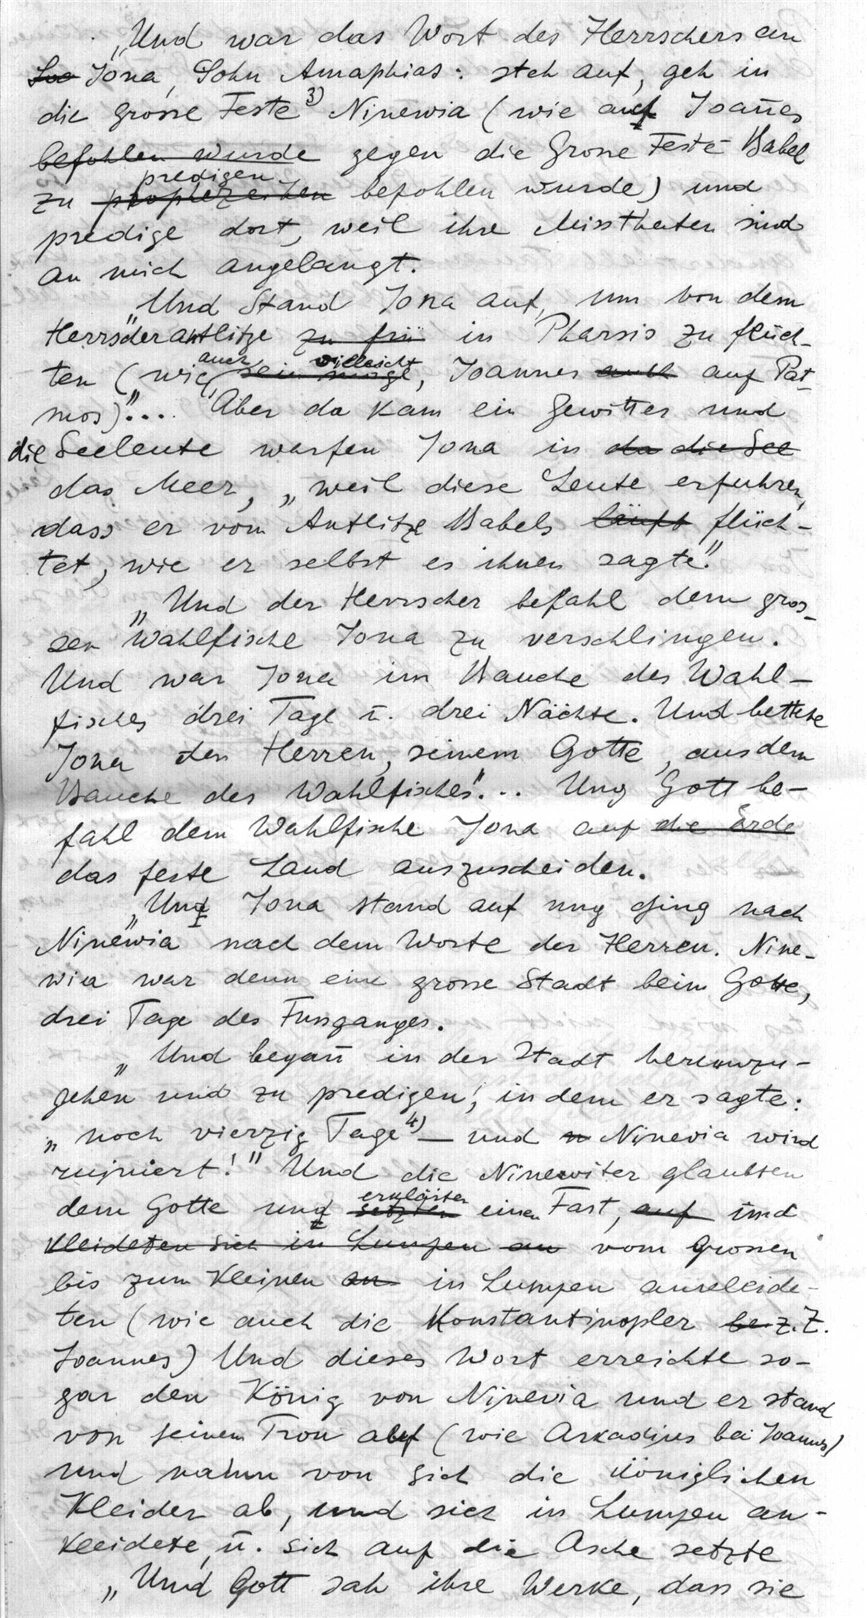 „Und war das Wort des Herrschers an
Iona, Sohn Amaphias: steh auf, geh in
die grosse Feste ³⁾ Ninewia (wie auch Joan̄es
befohlen wurde gegen die Grosse Feste Babel
zu prophezeihen predigen befohlen wurde) und
predige dort, weil ihre Missthaten sind
an mich angelangt.
„Und Stand Iona auf, um von dem
Herrscherantlitze zu in Pharsis zu flüch-
ten (wie auch vielleicht, Joannes auch auf Pat-
mos)"... Aber da kam ein Gewitter und
die Seeleute warfen Iona in da die See
das Meer, „weil diese Leute erfuhren,
dass er vom Antlitze Babels läuft flüch-
tet, wie er selbst es ihnen sagte".
„Und der Herrscher befahl dem gros-
sen Wahlfische Iona zu verschlingen.
Und war Iona im Bauche des Wahl-
fisches drei Tage u. drei Nächte. Und bettete
Iona den Herren, seinem Gotte, aus dem
Bauche des Wahlfisches"... Ung Gott be-
fahl dem Wahlfische Iona auf die Erde
das feste Land auszuscheiden.
„Und Iona stand auf ung ging nach
Ninewia nach dem Worte der Herren. Nine-
wia war denn eine grosse Stadt beim Gotte,
drei Tage des Fussganges.
„Und began̄ in der Stadt herumzu-
gehen und zu predigen, indem er sagte:
„noch vierzig Tage ⁴⁾ — und n Ninevia wird
ruiniert!" Und die Ninewiter glaubten
dem Gotte und setzten erklärten einen Fast, auf und
kleideten sich in Lumpen an vom Grossen
bis zum Kleinen an in Lumpen ankleide-
ten (wie auch die Konstantinopler be z. Z.
Joannes) Und dieses Wort erreichte so-
gar den König von Ninevia und er stand
von seinem Tron auf (wie Arkadius bei Joannes)
und nahm von sich die königlichen
Kleider ab, und sich in Lumpen an-
kleidete, u. sich auf die Asche setzte
„Und Gott sah ihre Werke, dass sie